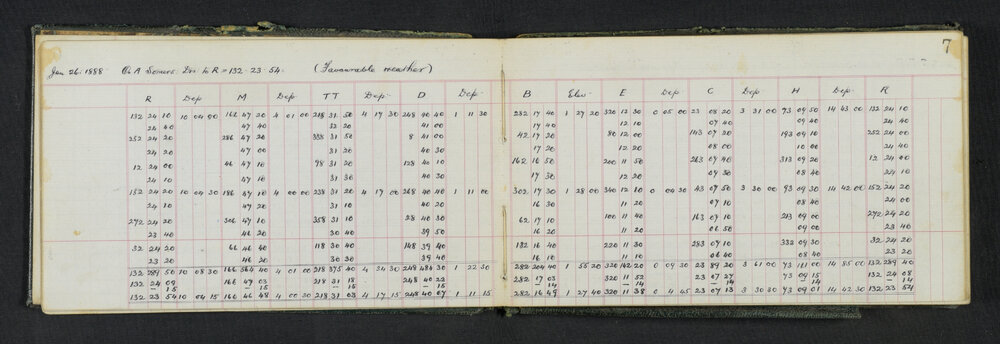 7
Jan 26. 1888 On A Somers Dir. to R = 132. 23. 54. (Favourable weather)
R Dep M Dep TT Dep D Dep B Elev E Dep C Dep H Dep R
132 24 10 10 04 00 166 47 20 4 01 00 218 31 50 4 17 30 248 40 40 1 11 30 282 17 40 1 27 20 320 12 30 0 05 00 23 08 20 3 31 00 73 09 50 14 43 00 132 24 10
24 40 47 40 32 20 41 00 17 40 12 10 07 40 09 40 24 40
252 24 20 286 47 20 338 31 50 8 41 00 42 17 20 80 12 00 143 07 20 193 09 10 252 24 00
24 20 47 00 31 20 40 30 17 20 12 20 08 00 10 00 24 40
12 24 00 46 47 10 98 31 20 128 40 10 162 16 50 200 11 50 263 07 40 313 09 20 12 24 00
24 10 47 10 31 30 40 30 17 30 12 20 07 50 08 40 24 10
152 24 20 10 04 30 186 47 10 4 00 00 238 31 20 4 17 00 268 40 40 1 11 00 302 17 30 1 28 00 340 12 10 0 04 30 43 07 50 3 30 00 93 09 30 14 42 00 152 24 20
24 10 47 20 31 10 40 20 16 30 11 20 07 10 08 40 24 10
272 24 20 306 47 10 358 31 10 28 40 30 62 17 10 100 11 40 163 07 10 213 09 00 272 24 20
23 40 46 20 30 40 39 50 16 20 11 20 06 50 09 00 23 40
32 24 20 66 46 40 118 30 40 148 39 40 182 16 40 220 11 30 283 07 10 332 09 30 32 24 20
23 20 46 10 30 30 39 40 16 10 11 10 06 40 08 40 23 20
132 289 50 10 08 30 166 564 40 4 01 00 218 375 40 4 34 30 248 484 30 1 22 30 282 204 40 1 55 20 320 142 20 0 09 30 23 89 20 3 61 00 73 111 00 14 85 00 132 289 40
132 24 09 166 47 03 218 31 18 248 40 22 282 17 03 320 11 52 23 07 27 73 09 15 132 24 08
— 15 — 15 — 15 — 15 — 14 — 14 — 14 — 14 — 14
132 23 54 10 04 15 166 46 48 4 00 30 218 31 03 4 17 15 248 40 07 1 11 15 282 16 49 1 27 40 320 11 38 0 4 45 23 07 13 3 30 30 73 09 01 14 42 30 132 23 54